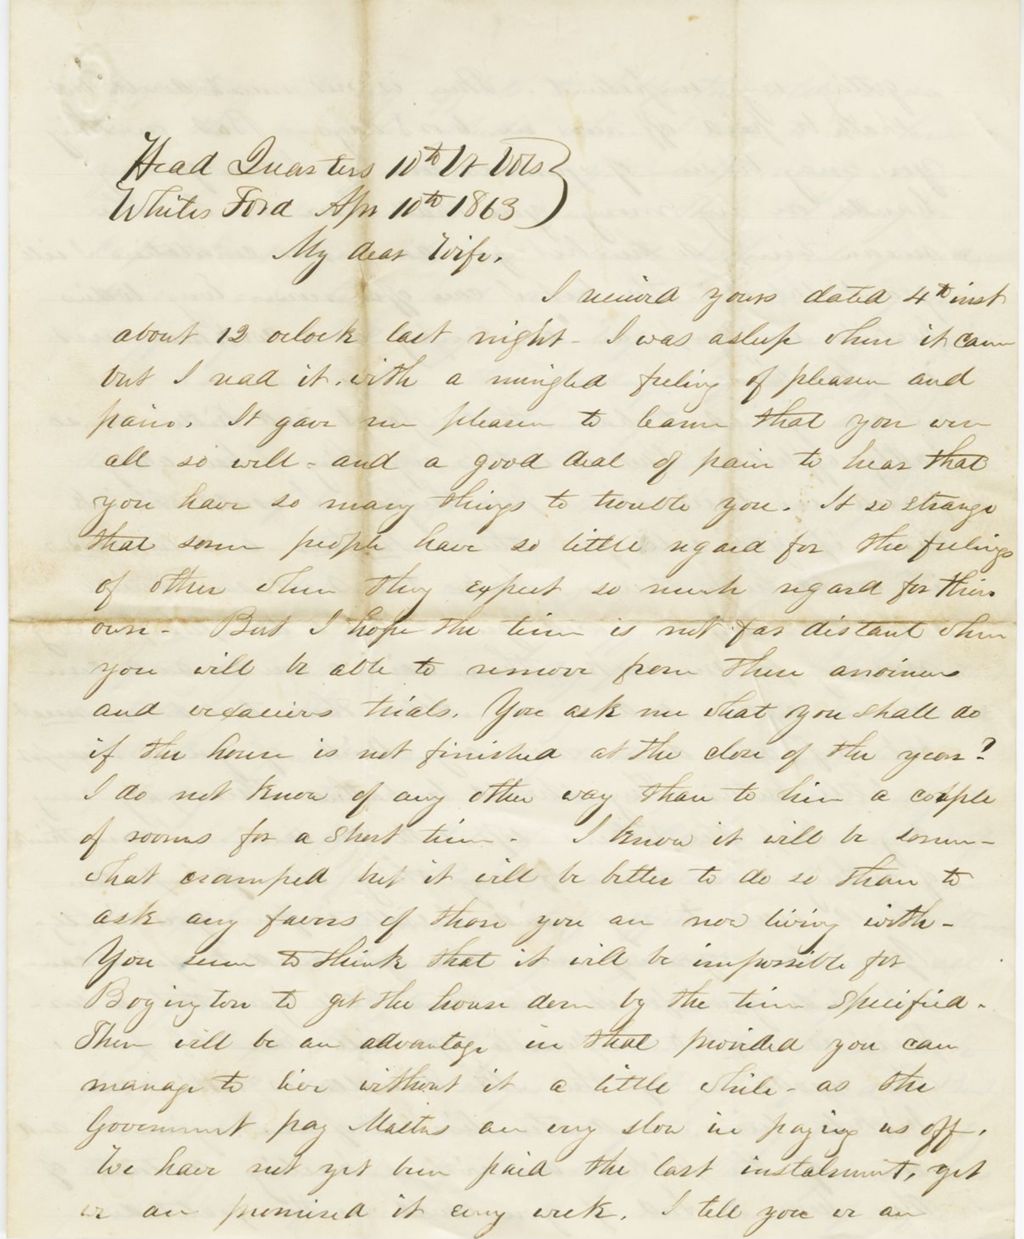 Head Quarters 10th Vt Vols
Whites Ford Apr 10th 1863
My dear Wife,
I received yours dated 4th inst
about 12 oclock last night - I was asleep when it came
but I read it with a mingled feeling of pleasure and
pain. It gave me pleasure to learn that you were
all so well - and a good deal of pain to hear that
you have so many things to trouble you. It so strange
that some people have so little regard for the feelings
of other when they expect so much regard for their
own - But I hope the time is not far distant when
you will be able to remove from these
and vexacious trials. You ask me what you shall do
if the house is not finished at the close of the year?
I do not know of any other way than to hire a couple
of rooms for a short time - I know it will be some-
what cramped but it will be better to do so than to
ask any favors of those you are now living with -
You seem to think that it will be impossible for
Boyington to get the house done by the time specified -
There will be an advantage in that provided you can
manage to live without it a little while - as the
Government pay Masters are very slow in paying us off.
We have not yet been paid the last instalment, yet
we are promised it every week. I tell you we are